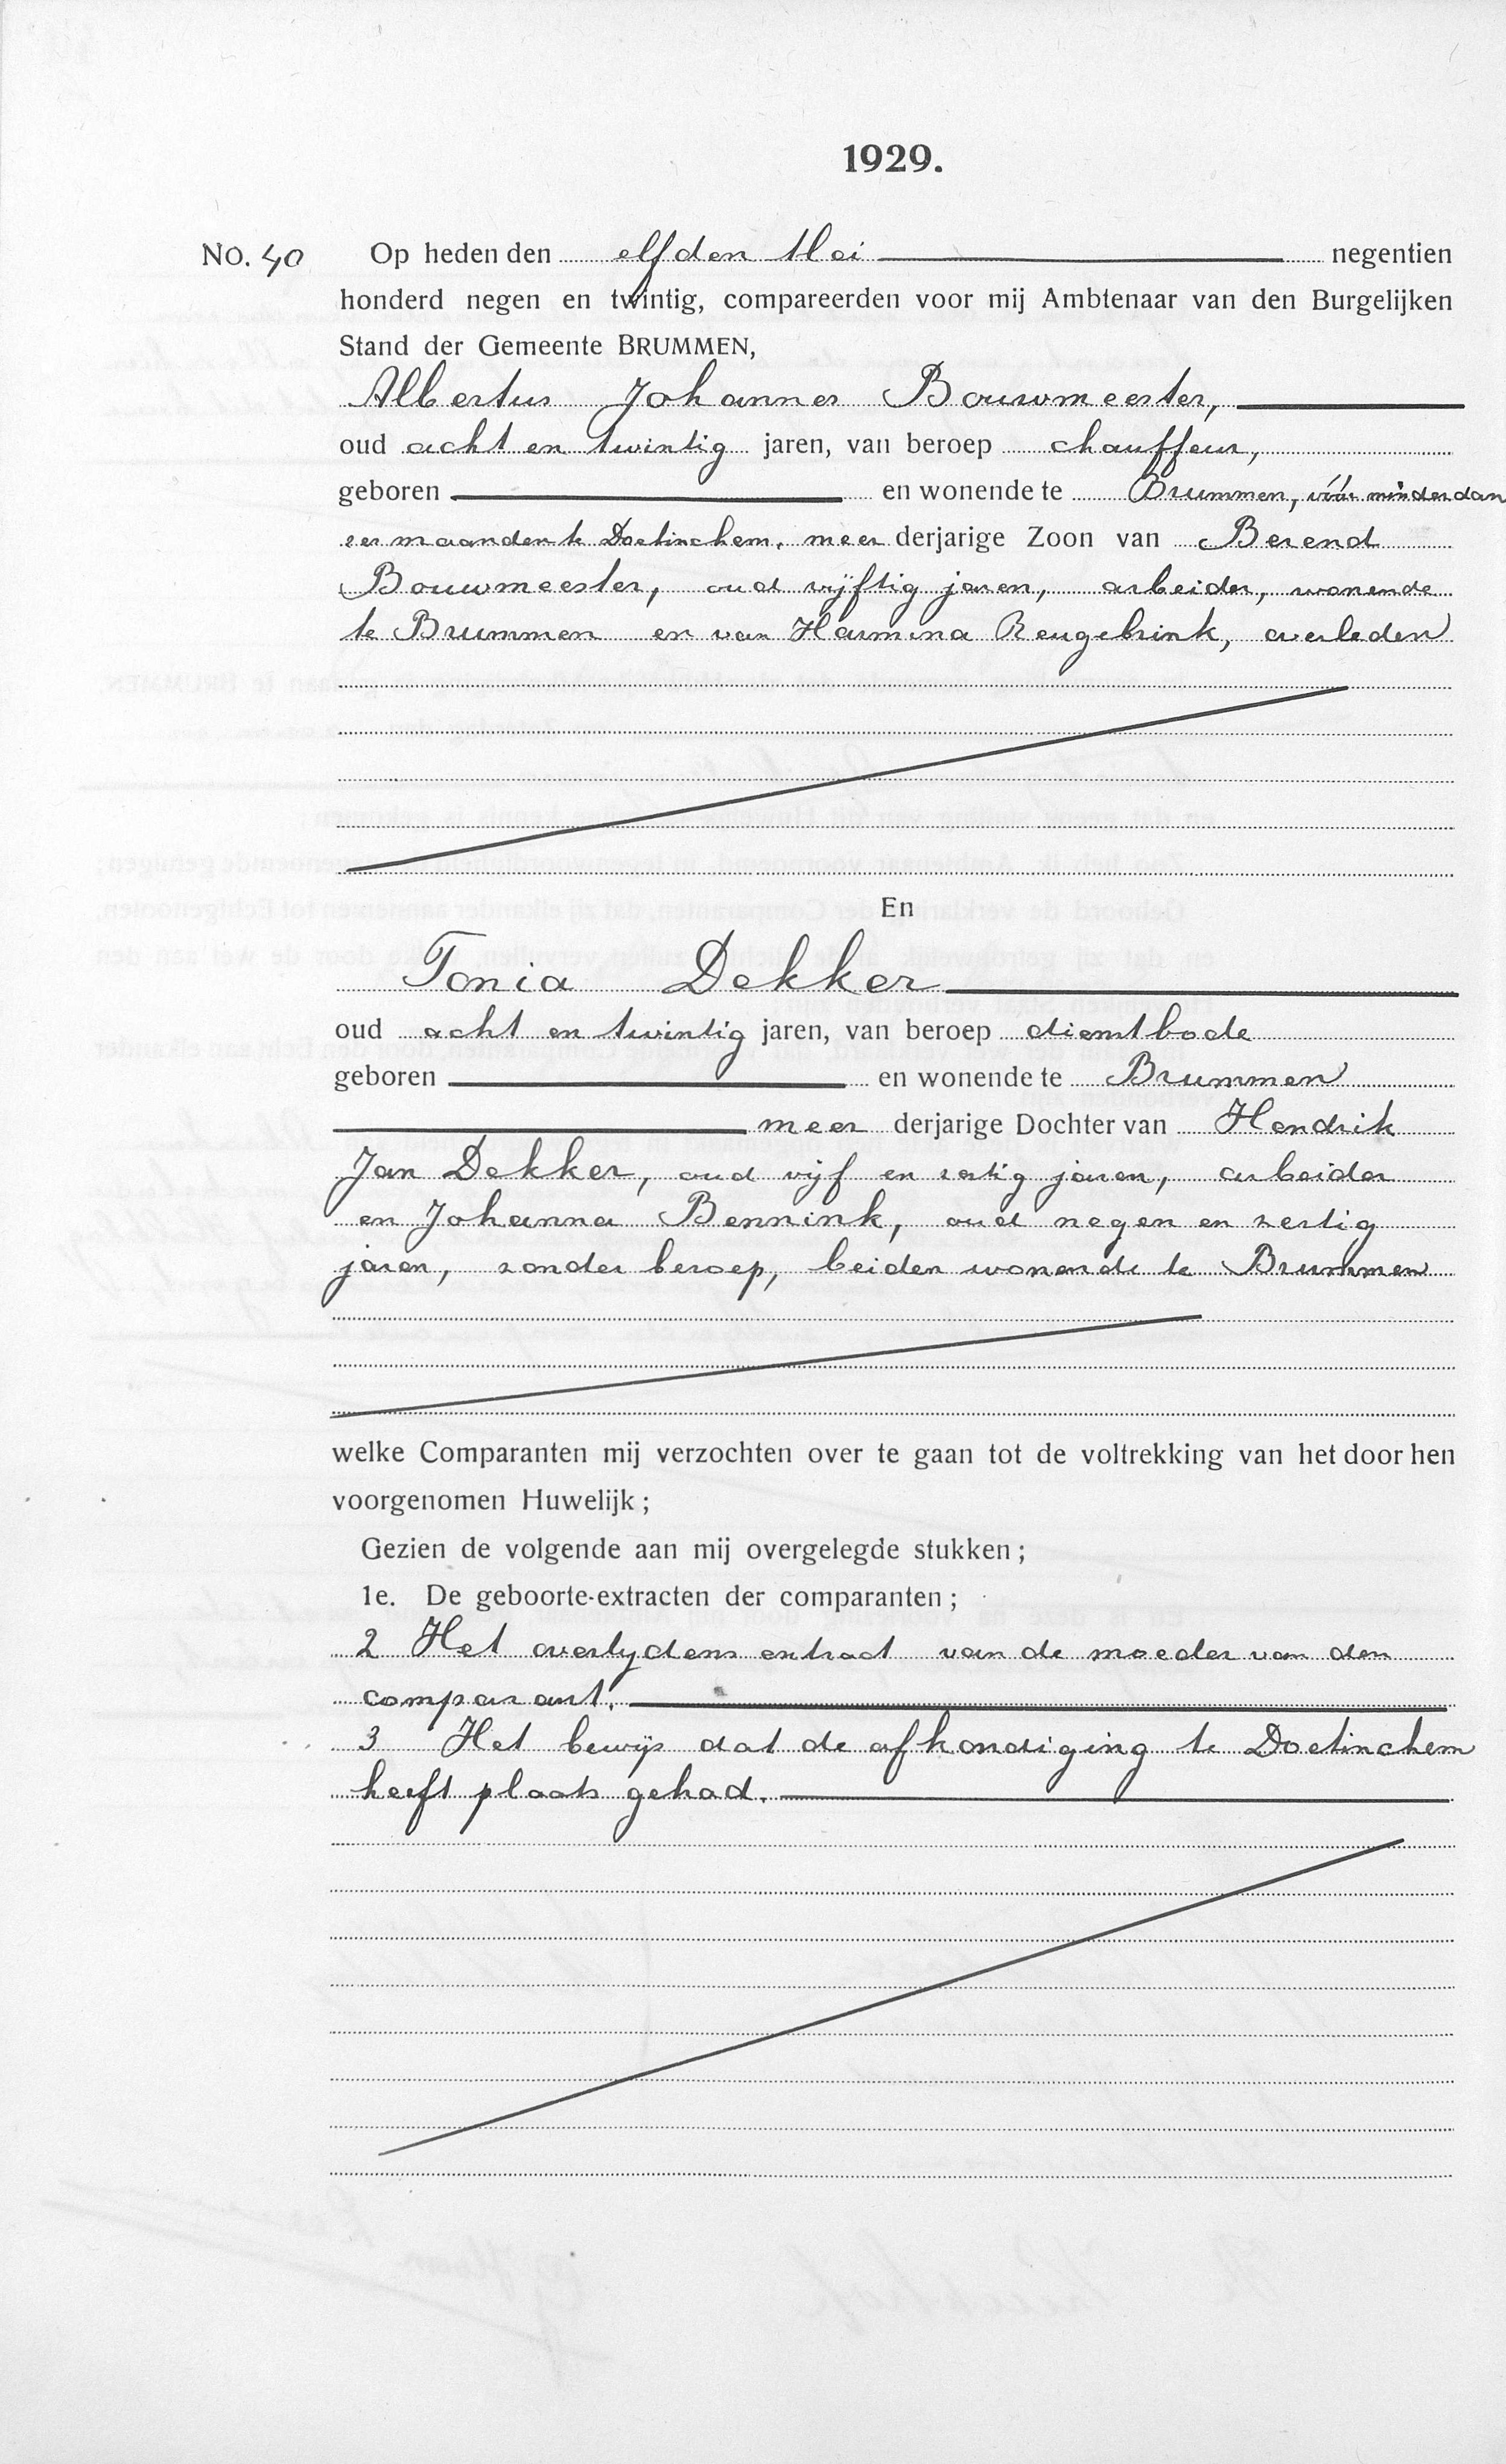 1929.
No. 40 Op heden den elfden Mei negentien
honderd negen en twintig, compareerden voor mij Ambtenaar van den Burgelijken
Stand der Gemeente BRUMMEN,
Albertus Johannes Bouwmeester,
oud acht en twintig jaren, van beroep chauffeur,
geboren en wonende te Brummen, vóór minder dan
zes maanden te Doetinchem, meer derjarige Zoon van Berend
Bouwmeester, oud vijftig jaren, arbeider, wonende
te Brummen en van Harmina Reugebrink, overleden
En
Tonia Dekker
oud acht en twintig jaren, van beroep dienstbode
geboren en wonende te Brummen
meer derjarige Dochter van Hendrik
Jan Dekker, oud vijf en zestig jaren, arbeider
en Johanna Bennink, oud negen en zestig
jaren, zonder beroep, beiden wonende te Brummen
welke Comparanten mij verzochten over te gaan tot de voltrekking van het door hen
voorgenomen Huwelijk ;
Gezien de volgende aan mij overgelegde stukken ;
1e. De geboorte-extracten der comparanten ;
2 Het overlydens extract van de moeder van den
comparant.
3 Het bewijs dat de afkondiging te Doetinchem
heeft plaats gehad.